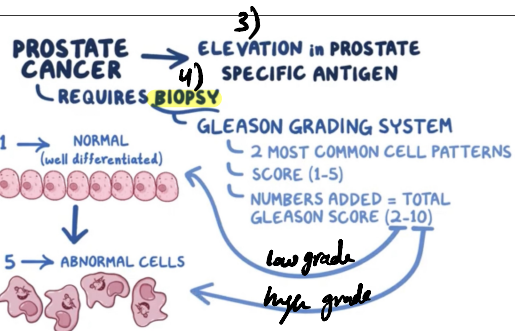 3)
PROSTATE CANCER → ELEVATION in PROSTATE
SPECIFIC ANTIGEN
4)
REQUIRES BIOPSY
GLEASON GRADING SYSTEM
2 MOST COMMON CELL PATTERNS
SCORE (1-5)
NUMBERS ADDED = TOTAL
GLEASON SCORE (2-10)
1 → NORMAL
(well differentiated)
5 → ABNORMAL CELLS
low grade
high grade